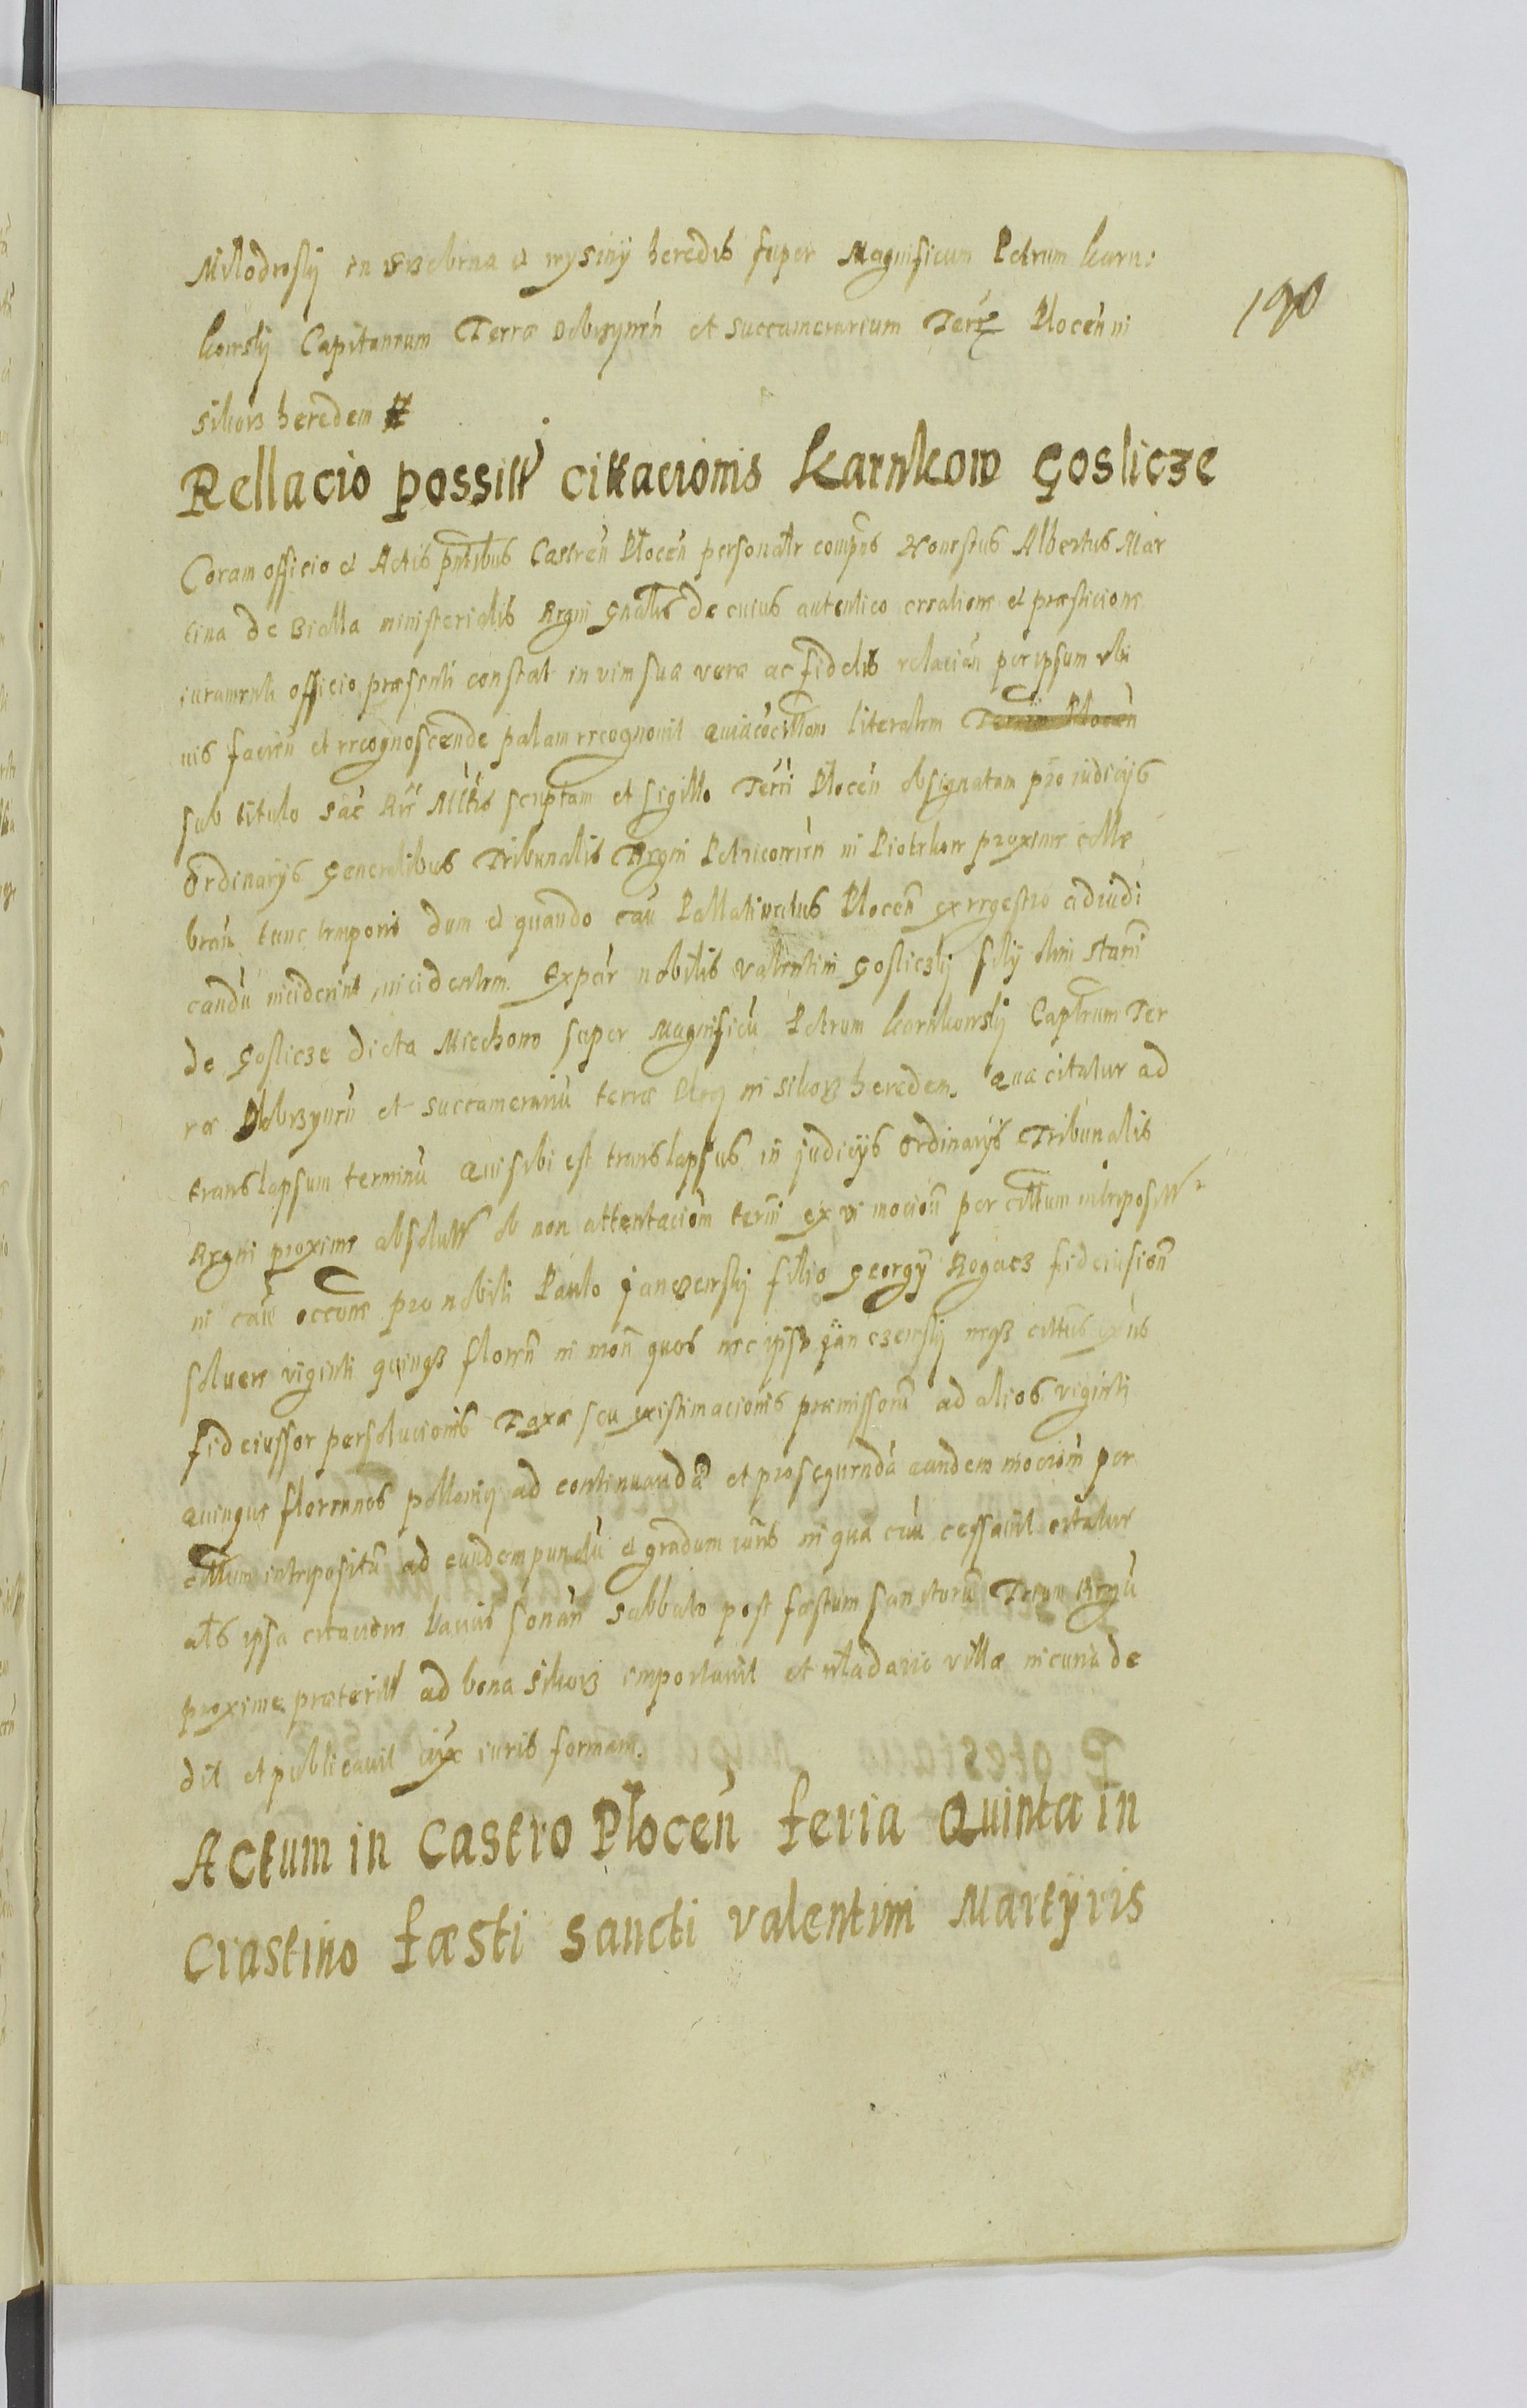 Milodrosky en Srebrna et wysiny heredis super Magnificum Petrum karn:
kowsky Capitaneum Terræ Dobrzynen et succamerarium Terræ Plocen in
sikorz heredem
190
Rellacio possitt cittacionis karnkow Goslicze
Coram officio et Actis pntibus Castren Plocen personalr compns Honestus Albertus Mar
cina de Bialla ministerialis Regni Gnalis de cuius autentico creatione et præsticione
iuramenti officio præsenti constat in vim suæ veræ ac fidelis relacion per ipsum
facien et recognoscende palam recognovit quia literalem Terrin Plocen
sub titulo sac scriptam et sigillo Terri Plocen obsignatam pro iudicijs
Ordinarijs Generalibus Tribunalis Regni Petricovien in Piotrkow proxime celle
bran tunc temporis dum et quando cau Pallatinatus Plocen ex regestro adiudi
candu inciderint incidentem. Expar nobilis Valentini Gosliczky filij olim Stani
de Gosliczе dicta Miechowo super Magnificu Petrum karnkowsky Captneum Ter
ræ Dobrzynen et succamerariu terræ Ploc in sikorz heredem. Quæ citatur ad
translapsum terminu qui sibi est translapsus in judicijs Ordinarijs Tribunalis
Regni proxime absolutt ob non attentaciom termi ex vi mocion per cittum interpositt
in cau pro nobili Paulo janczewsky filio Georgy Rogacz fideiusion
soluere viginti quinqz floren in mon quos nec ipse jan czewsky neqz cittus
fideiussor persolucionis Taxæ seu existimacionis præmissoru ad alios viginti
quinque florennos ad continuanda et prosequenda eandem mociom per
cittum interpositu ad eundem punctu et gradum iuris in qua cau cessavit citatur
als ipsa citacione lacius sonan Sabbato post fæstum sanctorũ Trium Regu
proxime præteritt ad bona sikorz importavit et wladario villæ in curia de
dit et publicavit iux iuris formam.
Actum in Castro Plocen feria Quinta in
Crastino fæsti Sancti Valentini Martyris